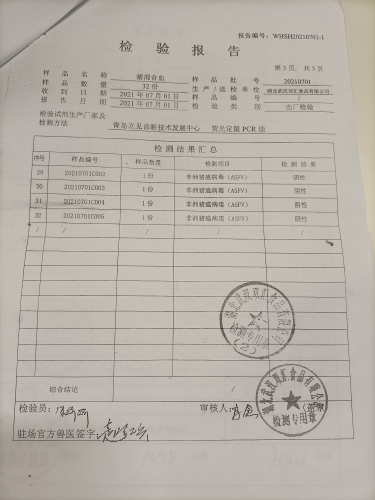 报告编号：WHSH20210701-1
检 验 报 告
第 3 页，共 3 页
样 品 名 称 猪混合血 样 品 批 号 20210701
样 品 数 量 32份 生 产 / 送 检 单 位 湖北武汉双汇食品有限公司
收 到 日 期 2021 年 07 月 01 日 样 品 编 号 /
报 告 日 期 2021 年 07 月 01 日 检 验 类 别 出厂检验
检验试剂生产厂家及
检测方法 青岛立见诊断技术发展中心 荧光定量 PCR 法
检 测 结 果 汇 总
序号 样品编号 样品数量 检测项目 检 测 结 果
29 20210701C002 1 份 非洲猪瘟病毒（ASFV） 阴性
30 20210701C003 1 份 非洲猪瘟病毒（ASFV） 阴性
31 20210701C004 1 份 非洲猪瘟病毒（ASFV） 阴性
32 20210701C005 1 份 非洲猪瘟病毒（ASFV） 阴性
/ / / / /
湖北武汉双汇食品有限公司
检测专用章
(2)
综合结论 /
检验员： 审核人：
湖北武汉双汇食品有限公司
检测专用章
驻场官方兽医签字：